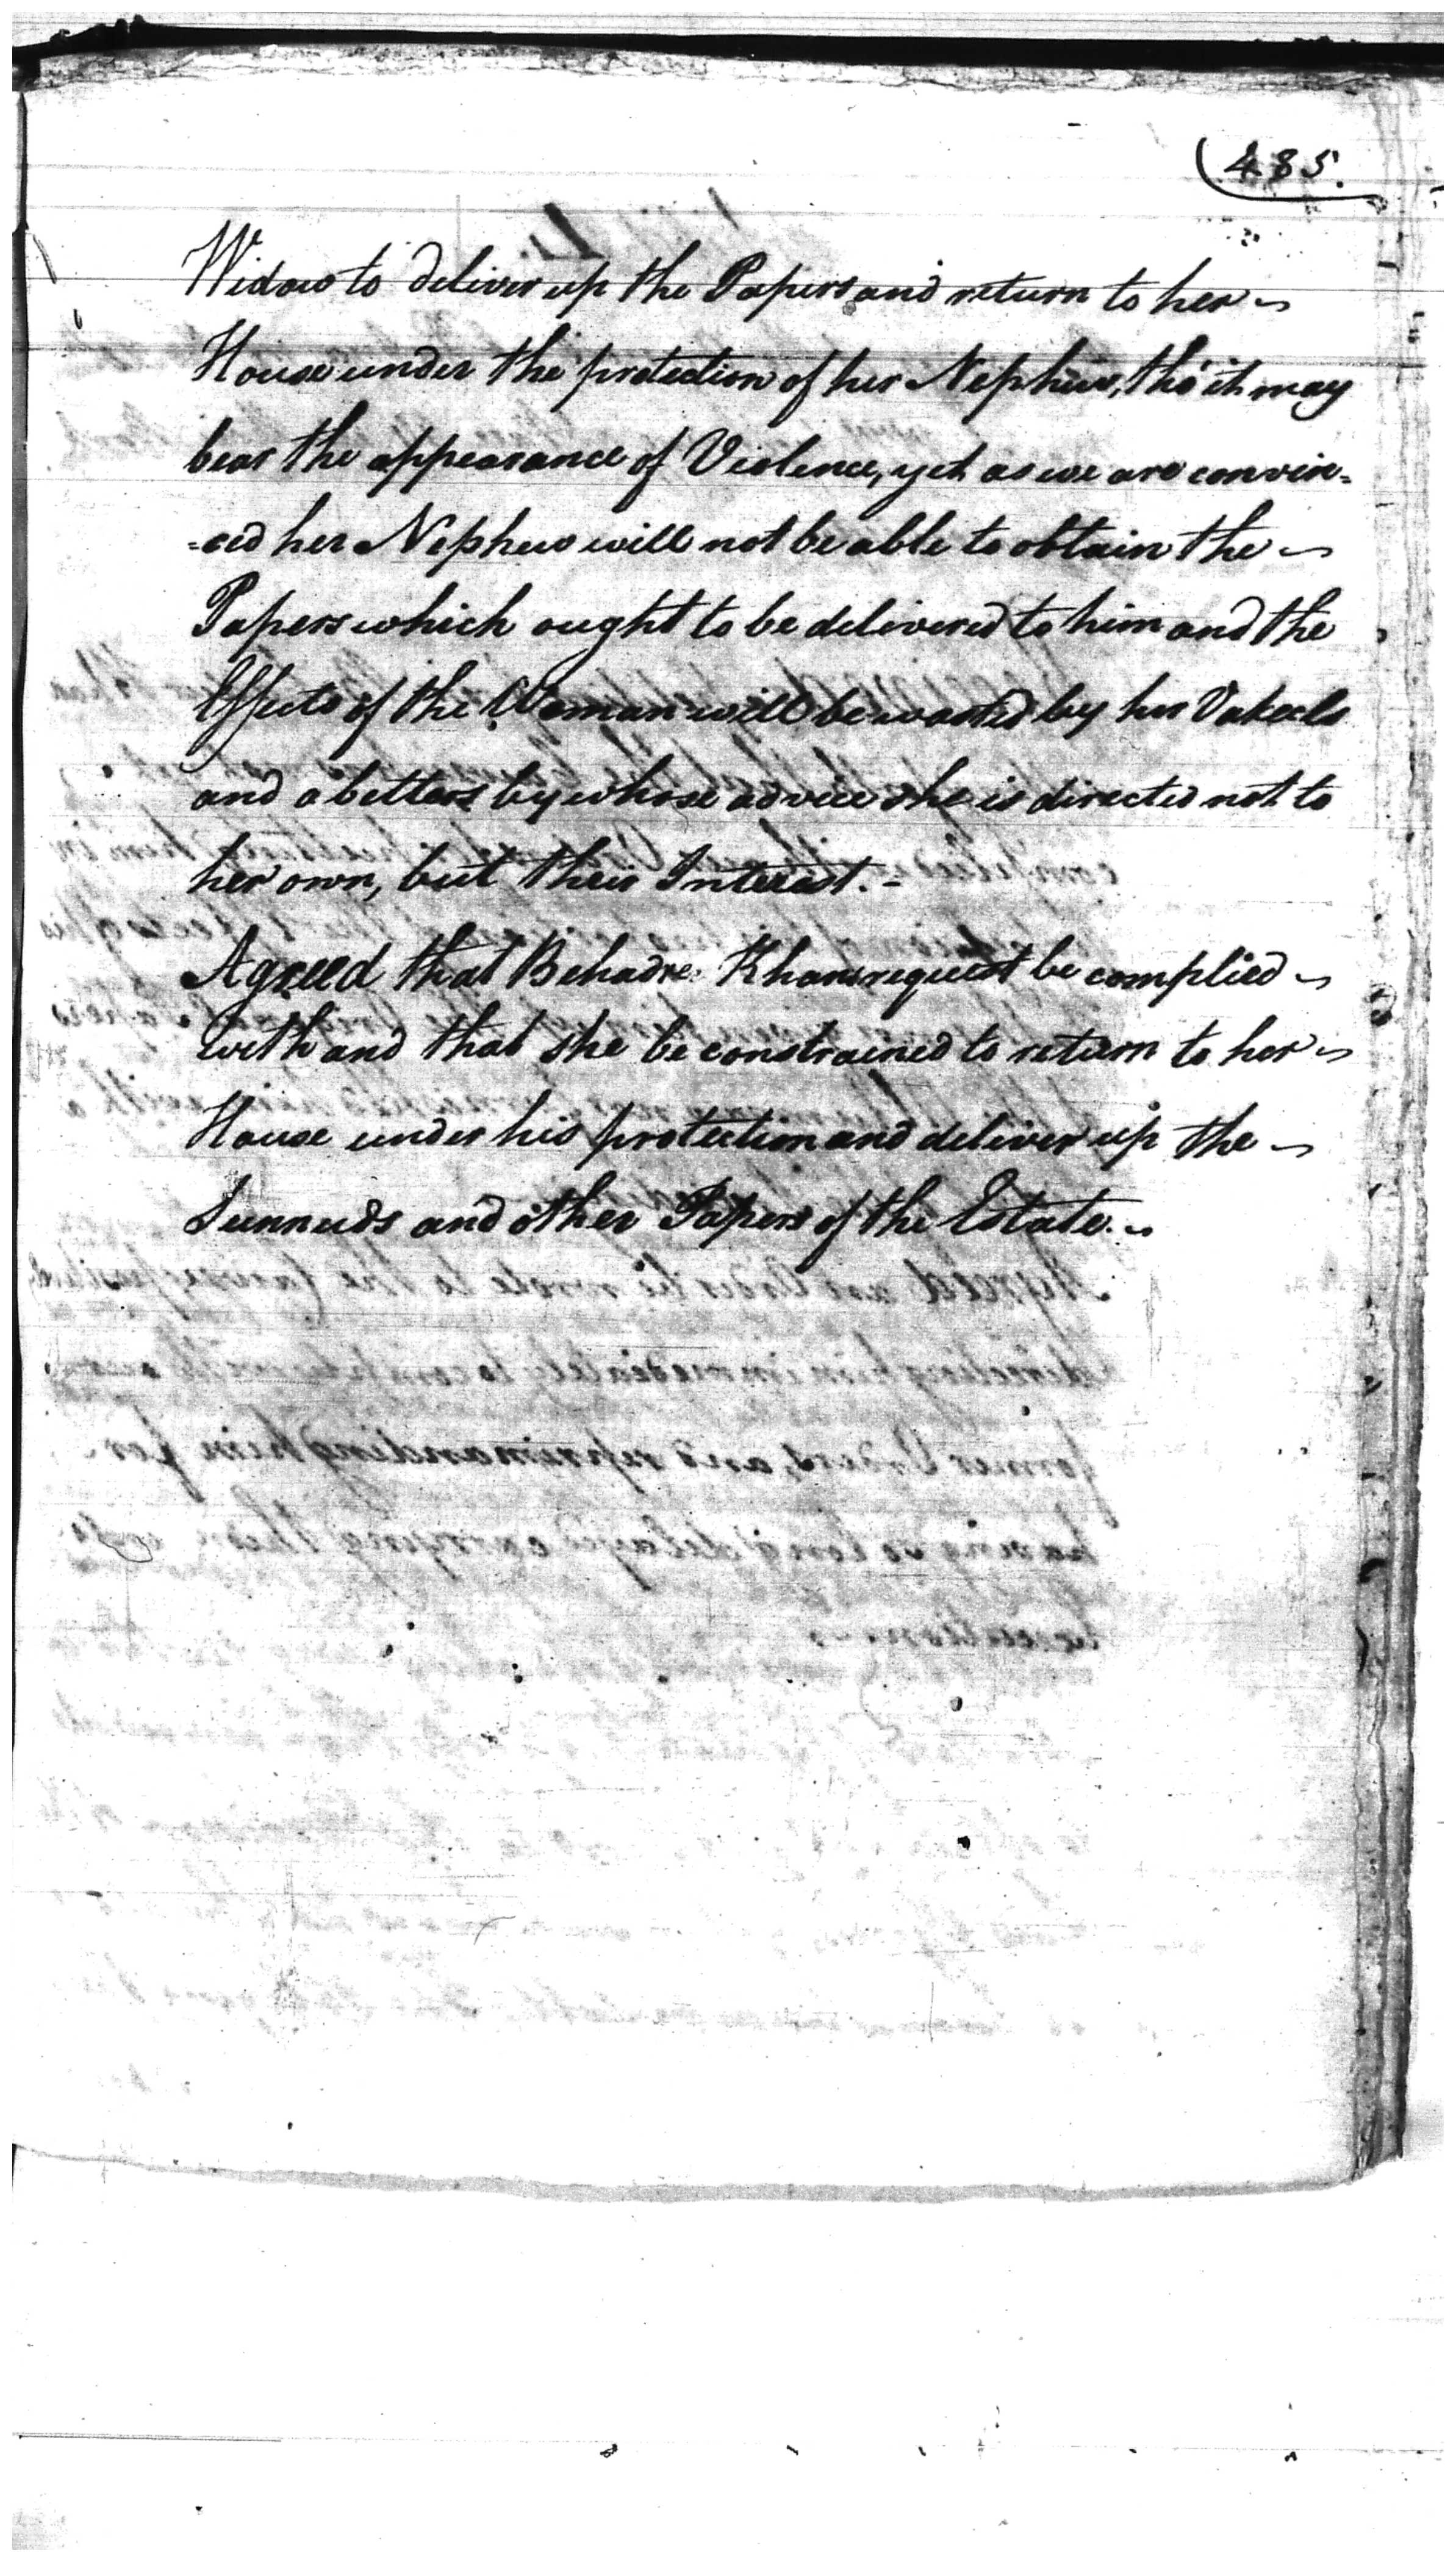 485.
Widow to deliver up the Papers and return to her
House under the protection of her Nephew, tho' it may
bear the appearance of Violence, yet as we are convin=
=ced her Nephew will not be able to obtain the
Papers which ought to be delivered to him and the
Effects of the Woman will be wasted by her Vakeels
and abettors by whose advice she is directed not to
her own, but their Interest.-
Agreed that Behadre Khans request be complied
with and that she be constrained to return to her
House under his protection and deliver up the
Sunnuds and other Papers of the Estate.